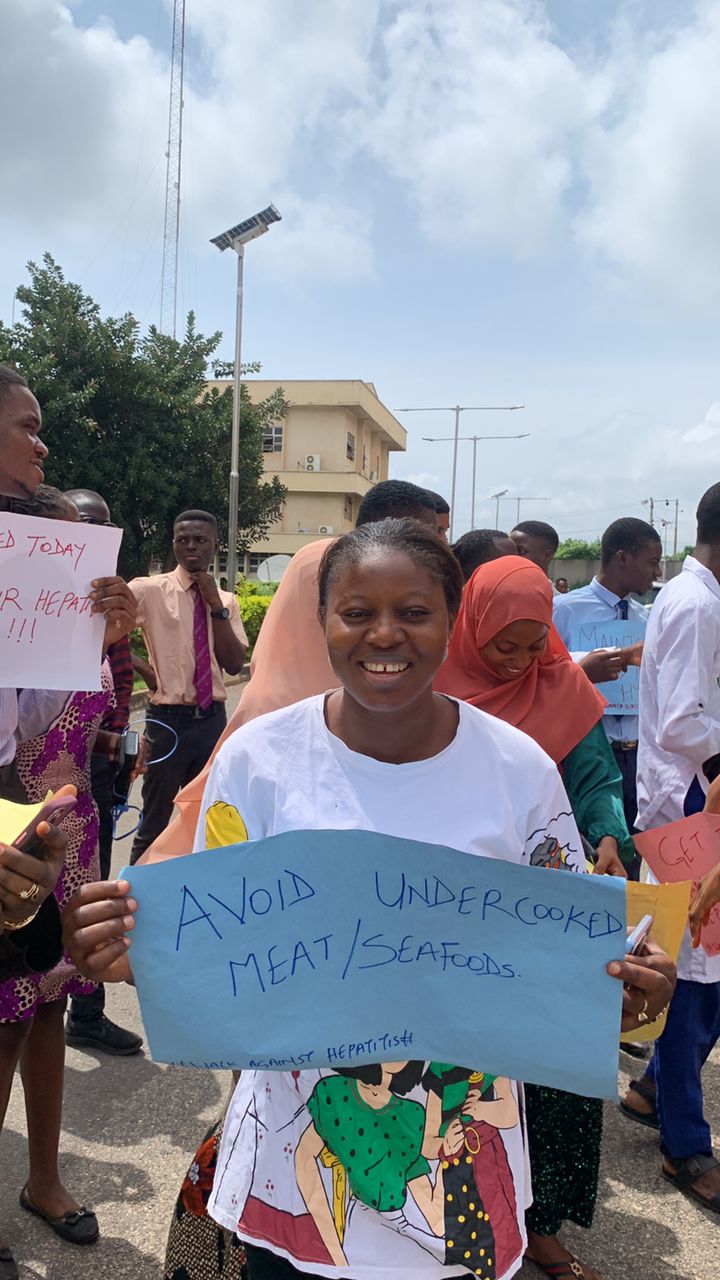 ED TODAY
R HEPATI
!!!
MAINTA
H
GET
AVOID UNDERCOOKED
MEAT/SEAFOODS.
#WALK AGAINST HEPATITIS#